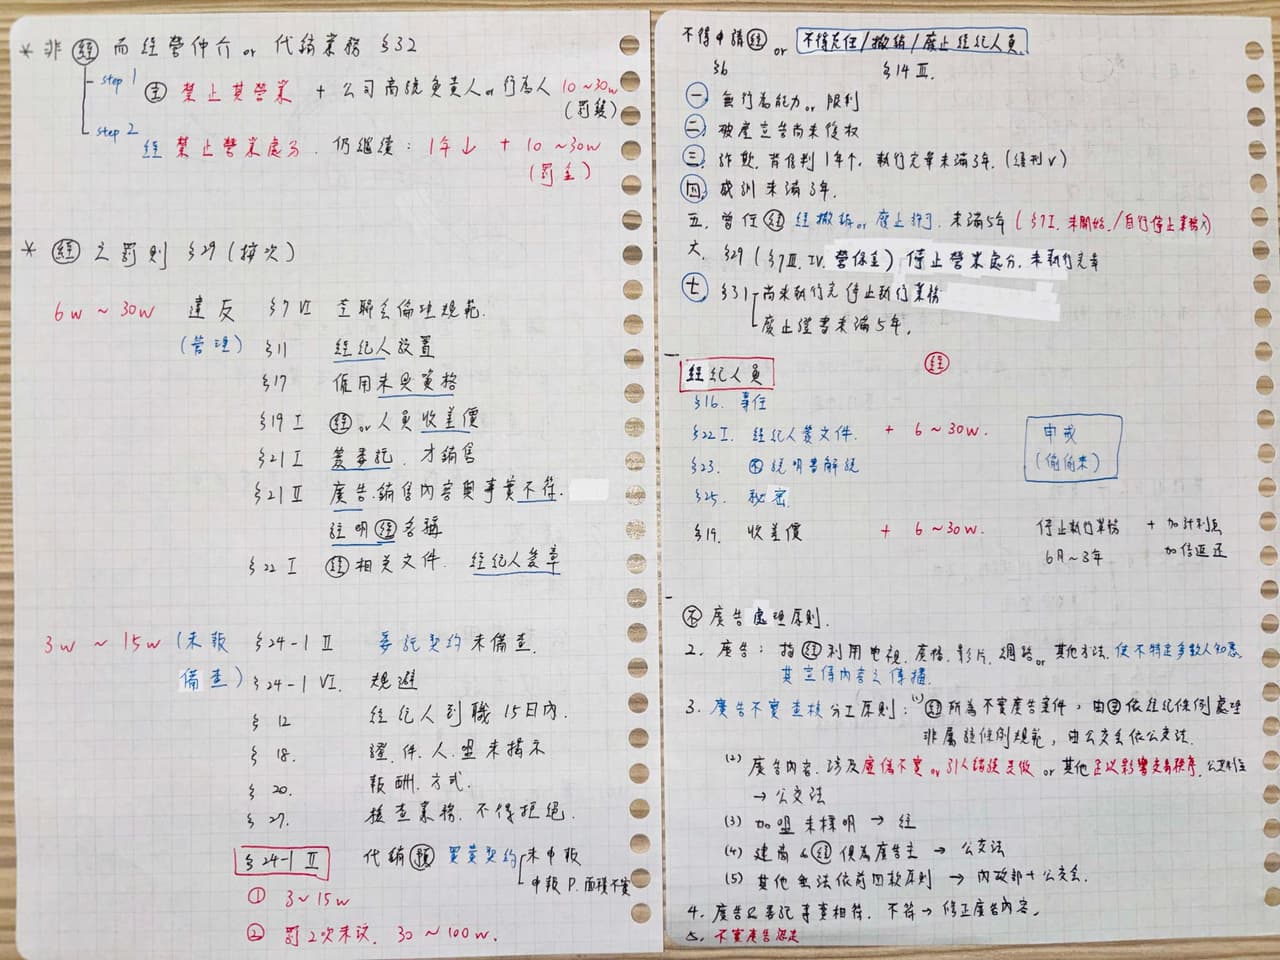 * 非 經 而經營仲介 or 代銷業務 §32
step 1 主 禁止其營業 + 公司商號負責人 or 行為人 10~30w
(罰鍰)
step 2 經 禁止營業處分. 仍繼續: 1年↓ + 10~30w
(罰金)
* 經 之罰則 §29 (按次)
6w ~ 30w 違反 §7 VI 全聯會倫理規範.
(管理) §11 經紀人設置
§17 僱用未具資格
§19 I 經 or 人員收差價
§21 I 簽委託. 才銷售
§21 II 廣告.銷售內容與事實不符.
註明 經 名稱
§22 I 經 相關文件. 經紀人簽章
3w ~ 15w (未報 §24-1 II 委託契約未備查.
備查) §24-1 VI. 規避
§12 經紀人到職15日內.
§18. 證.件.人.盟未揭示
§20. 報酬.方式.
§27. 檢查業務.不得拒絕.
§24-1 II 代銷 預 買賣契約 未申報
申報P.面積不實
① 3~15w
② 罰2次未改. 30~100w.
不得申請 經 or 不得充任/撤銷/廢止經紀人員.
§6 §14 II.
一 無行為能力 or 限制
二 破產宣告尚未復權
三 詐欺.背信判1年↑. 執行完畢未滿3年. (緩刑v)
四 感訓未滿3年.
五. 曾任 經 經撤銷 or 廢止許可. 未滿5年 (§7 I. 未開始./自行停止業務)
六. §29 (§7 III. IV. 營保金) 停止營業處分. 未執行完畢
七 §31 尚未執行完停止執行業務
廢止證書未滿5年.
經紀人員 經
§16. 專任
§22 I. 經紀人簽文件. + 6~30w. 申戒
§23. 不 說明書解說 (偷偷來)
§25. 秘密.
§19. 收差價 + 6~30w. 停止執行業務 + 加計利息
6月~3年 加倍返還
不 廣告處理原則.
2. 廣告: 指 經 利用電視.廣播.影片.網路 or 其他方法.使不特定多數人知悉
其宣傳內容之傳播.
3. 廣告不實查核分工原則: (1) 經 所為不實廣告案件, 由 主 依經紀條例處理
非屬該條例規範, 由公交會依公交法.
(2) 廣告內容.涉及虛偽不實 or 引人錯誤是做 or 其他足以影響交易秩序. 公交利主
→ 公交法
(3) 加盟未標明 → 經
(4) 建商 & 經 俱為廣告主 → 公交法
(5) 其他無法依前四款原則 → 內政部+公交會.
4. 廣告與委託事實相符. 不符→修正廣告內容.
5. 不實廣告